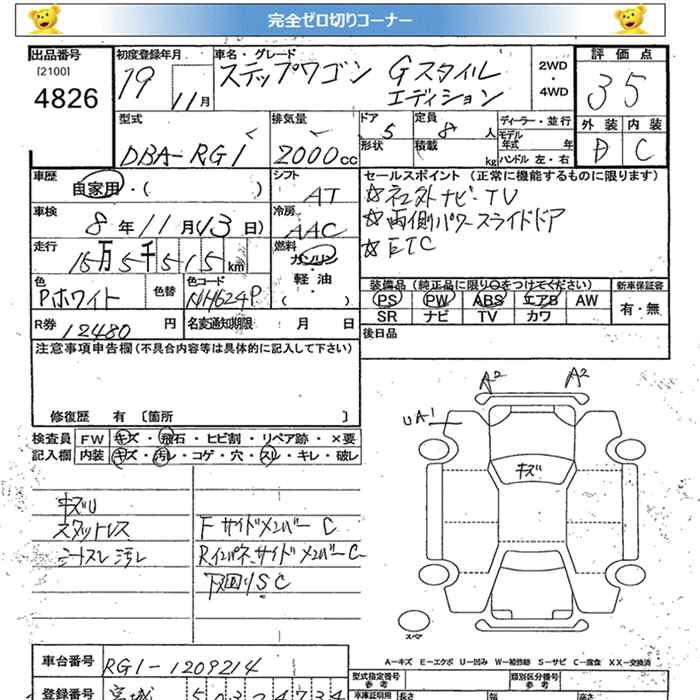 完全ゼロ切りコーナー
出品番号 初度登録年月 車名・グレード 評価点
[2100]
4826
19 11月
ステップワゴン Gスタイル エディション
2WD・4WD
35
型式 排気量 ドア 定員 ディーラー・並行 外装 内装
DBA-RG1 2000cc 5 8人
モデル年式 年
形状 積載 kg ハンドル 左・右
D C
車歴 シフト セールスポイント (正常に機能するものに限ります)
自家用・( ) AT
☆ネコ外ナビ・TV
車検 冷房
8年11月(13日) AAC
☆両側パワースライドドア
走行 燃料
15万5千515km ガソリン・軽油・( )
☆ETC
色 色替 色コード
Pホワイト NH624P
装備品 (純正品に限り○をつけてください) 新車保証書
PS PW ABS エアB AW 有・無
SR ナビ TV カワ
R券 12480円 名変通知期限 月 日
後日品
注意事項申告欄(不具合内容等は具体的に記入して下さい)
修復歴 有 [箇所 ]
検査員 FW キズ・飛石・ヒビ割・リペア跡・×要
記入欄 内装 キズ・汚レ・コゲ・穴・スリ・キレ・破レ
A2 A2
UA1
キズ
キズU
スタットレス Fサイドメンバー C
シートスレ汚レ Rインパネ、サイドメンバー C
下回りSC
スペア
A-キズ E-エクボ U-凹み W-補修跡 S-サビ C-腐食 XX-交換済
車台番号 RG1-1209214
型式指定番号 参考 類別区分番号 参考
登録番号 宮城 503 4734
車庫証明用 長さ 幅 高さ